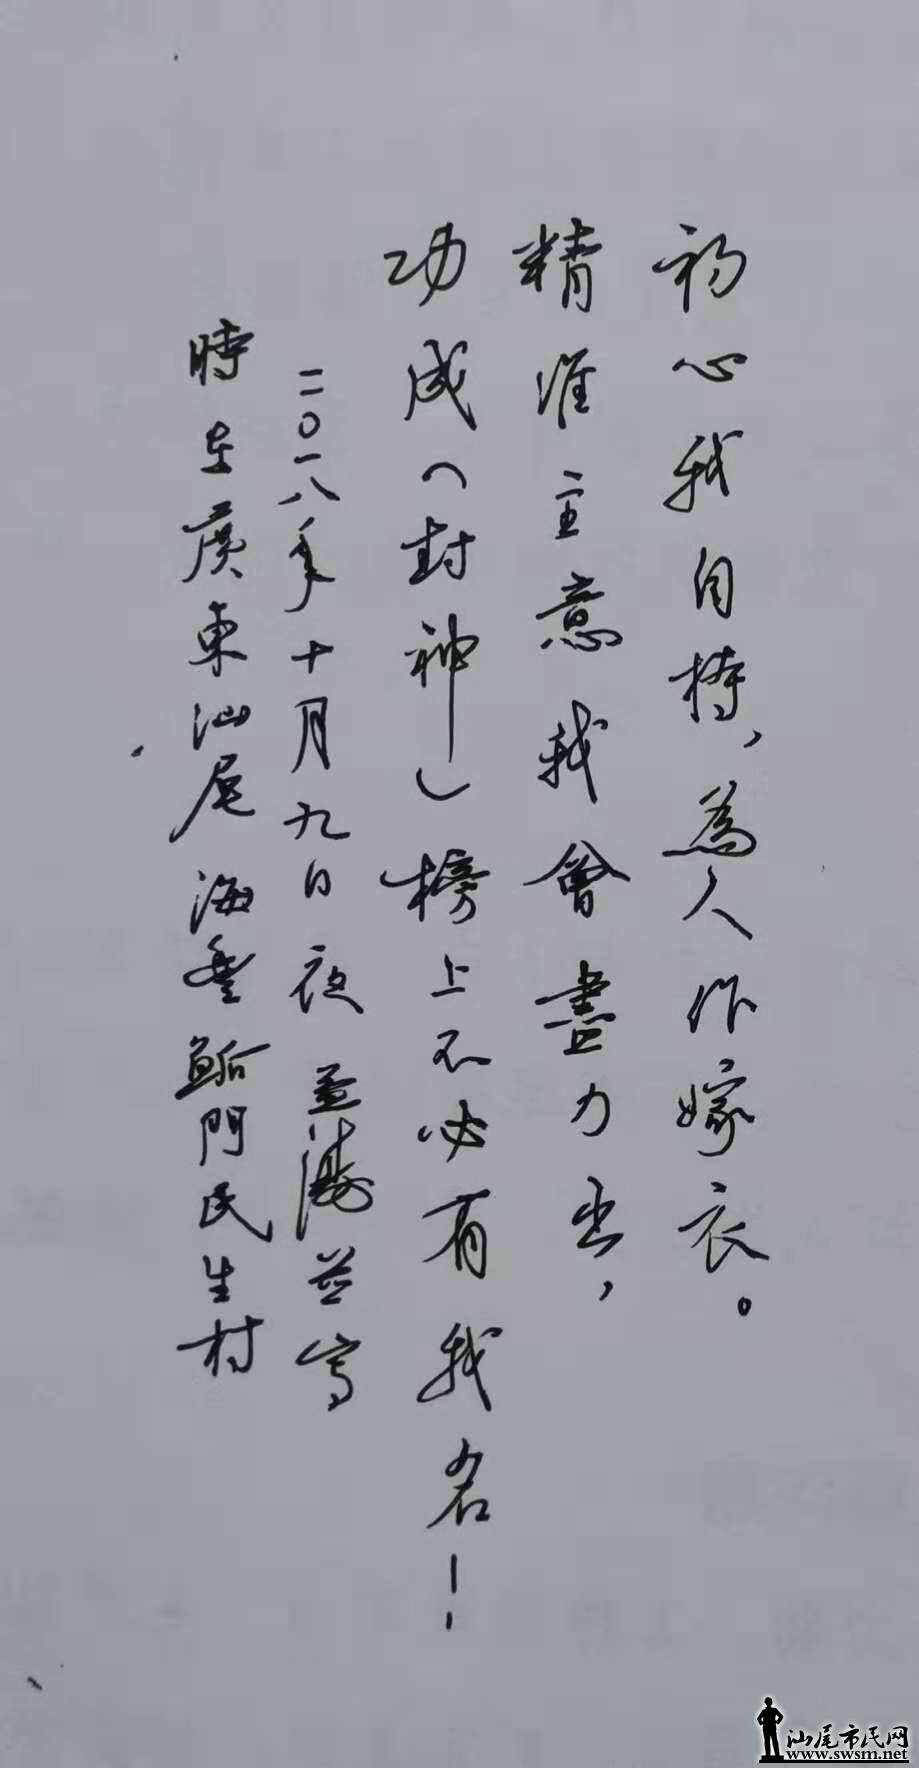 初心我自持，為人作嫁衣。
精准主意我會盡力出，
功成（封神）榜上不必有我名！
二〇一八年十月九日夜 孟湯並寫
時在廣東汕尾海豐鮜門民生村
汕尾市民网
www.swsm.net